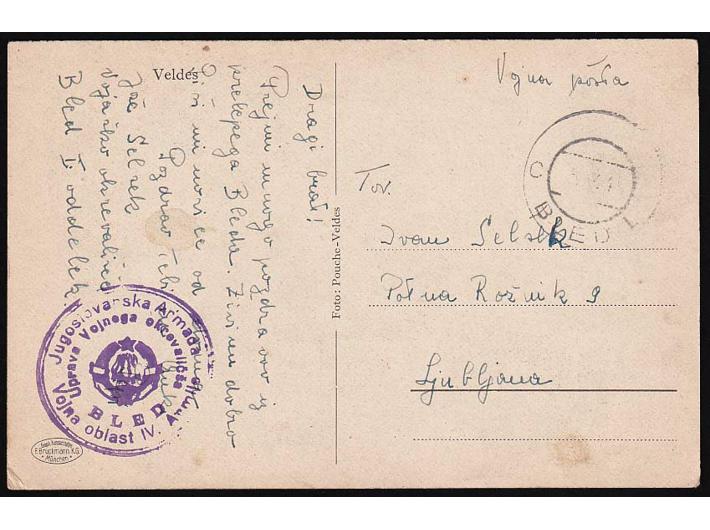 Veldes
Dragi brat!
Prejmi mnogo pozdravov iz
prelepega Bleda. Živim dobro
od
Pozdrav Tebi
Jože Selšek
Vojaško okrevališče
Bled II. oddelek
Jugoslovanska Armada
Uprava Vojnega okrevališča
BLED
Vojna oblast IV. Armije
F. Bruckmann K.G.
München
Foto: Pouche-Veldes
Vojna pošta
BLED 1
Tov.
Ivan Selšek
Potna Rožnik 9
Ljubljana